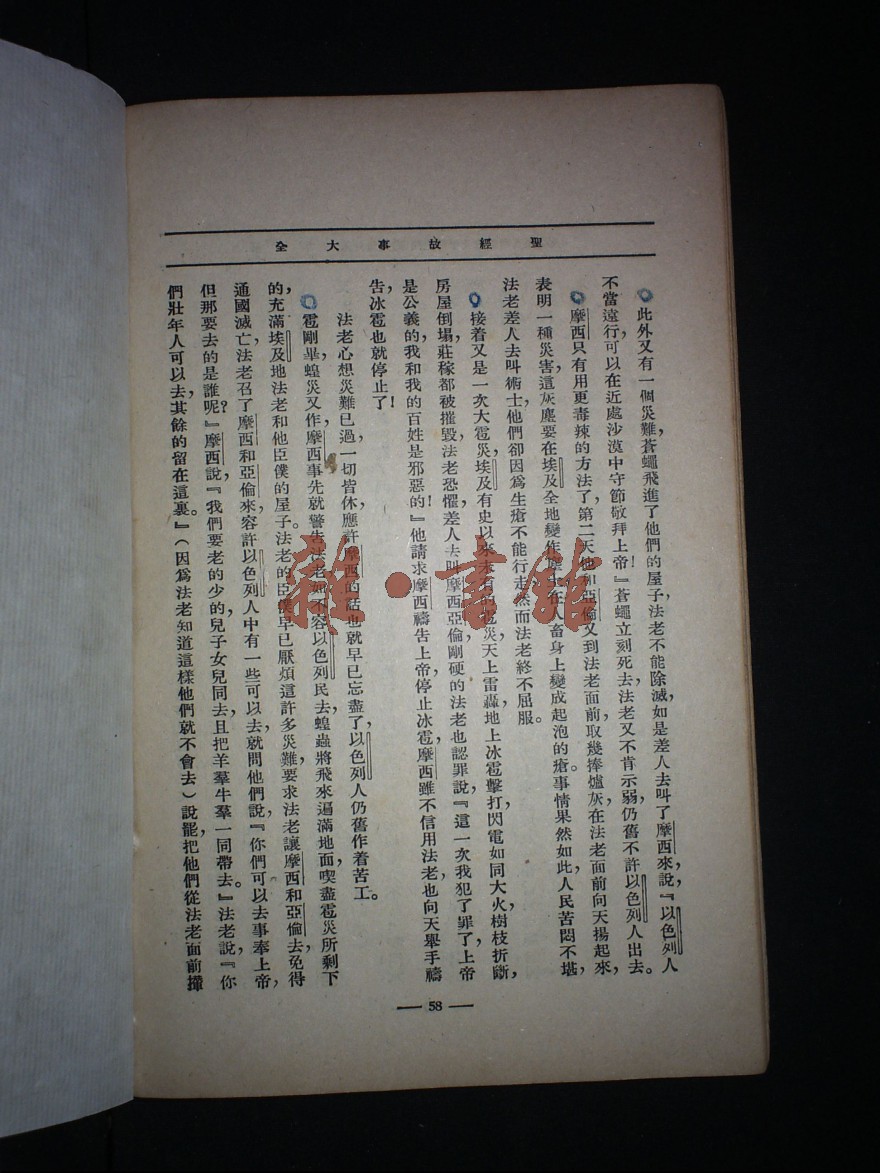 聖經故事大全
此外又有一個災難，蒼蠅飛進了他們的屋子，法老不能除滅，如是差人去叫了摩西來，說，『以色列人
不當遠行，可以在近處沙漠中守節敬拜上帝！』蒼蠅立刻死去，法老又不肯示弱，仍舊不許以色列人出去。
摩西只有用更毒辣的方法了，第二天他和亞倫又到法老面前，取幾捧爐灰在法老面前向天揚起來，
表明一種災害，這灰塵要在埃及全地變作塵土，在人畜身上變成起泡的瘡，事情果然如此，人民苦悶不堪，
法老差人去叫術士，他們卻因為生瘡不能行走，然而法老終不屈服。
接着又是一次大雹災，埃及有史以來未有的雹災，天上雷轟，地上冰雹擊打，閃電如同大火，樹枝折斷，
房屋倒塌，莊稼都被摧毀，法老恐懼，差人去叫摩西亞倫，剛硬的法老也認罪說，『這一次我犯了罪了，上帝
是公義的，我和我的百姓是邪惡的！』他請求摩西禱告上帝，停止冰雹，摩西雖不信用法老，也向天舉手禱
告，冰雹也就停止了！
法老心想災難已過，一切皆休，應許摩西的話也就早已忘盡了，以色列人仍舊作着苦工。
雹剛畢，蝗災又作，摩西事先就警告法老，如不容以色列民去，蝗蟲將飛來遍滿地面，喫盡雹災所剩下
的，充滿埃及地法老和他臣僕的屋子。法老的臣僕早已厭煩這許多災難，要求法老讓摩西和亞倫去，免得
通國滅亡，法老召了摩西和亞倫來，容許以色列人中有一些可以去，就問他們說，『你們可以去事奉上帝，
但那要去的是誰呢？』摩西說，『我們要老的少的，兒子女兒同去，且把羊羣牛羣一同帶去。』法老說，『你
們壯年人可以去，其餘的留在這裏。』（因為法老知道這樣他們就不會去）說罷，把他們從法老面前攆
— 58 —
雜·書館